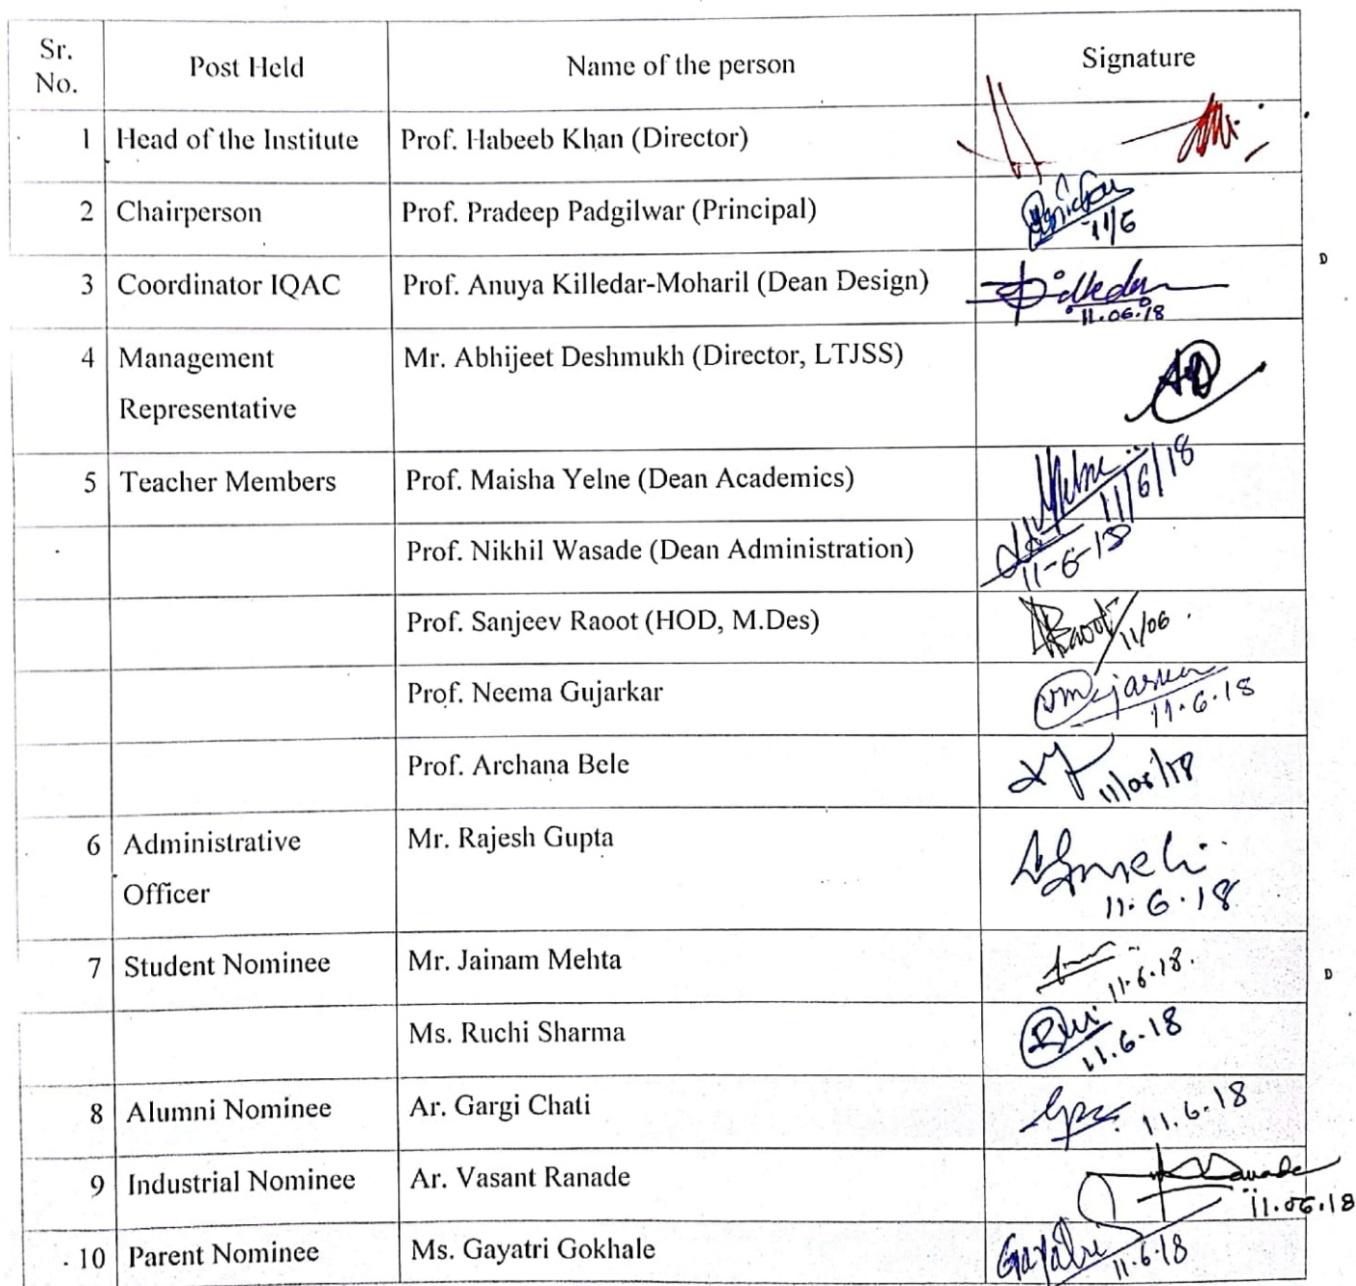 Sr. No. Post Held Name of the person Signature
1 Head of the Institute Prof. Habeeb Khan (Director)
2 Chairperson Prof. Pradeep Padgilwar (Principal) 11/6
3 Coordinator IQAC Prof. Anuya Killedar-Moharil (Dean Design) Killedar 11.06.18
4 Management Representative Mr. Abhijeet Deshmukh (Director, LTJSS)
5 Teacher Members Prof. Maisha Yelne (Dean Academics) Yelne 11/6/18
Prof. Nikhil Wasade (Dean Administration) 11-6-18
Prof. Sanjeev Raoot (HOD, M.Des) Raoot 11/06
Prof. Neema Gujarkar 11.6.18
Prof. Archana Bele 11/06/18
6 Administrative Officer Mr. Rajesh Gupta 11.6.18
7 Student Nominee Mr. Jainam Mehta 11.6.18.
Ms. Ruchi Sharma 11.6.18
8 Alumni Nominee Ar. Gargi Chati 11.6.18
9 Industrial Nominee Ar. Vasant Ranade Ranade 11.06.18
10 Parent Nominee Ms. Gayatri Gokhale Gayatri 11.6.18